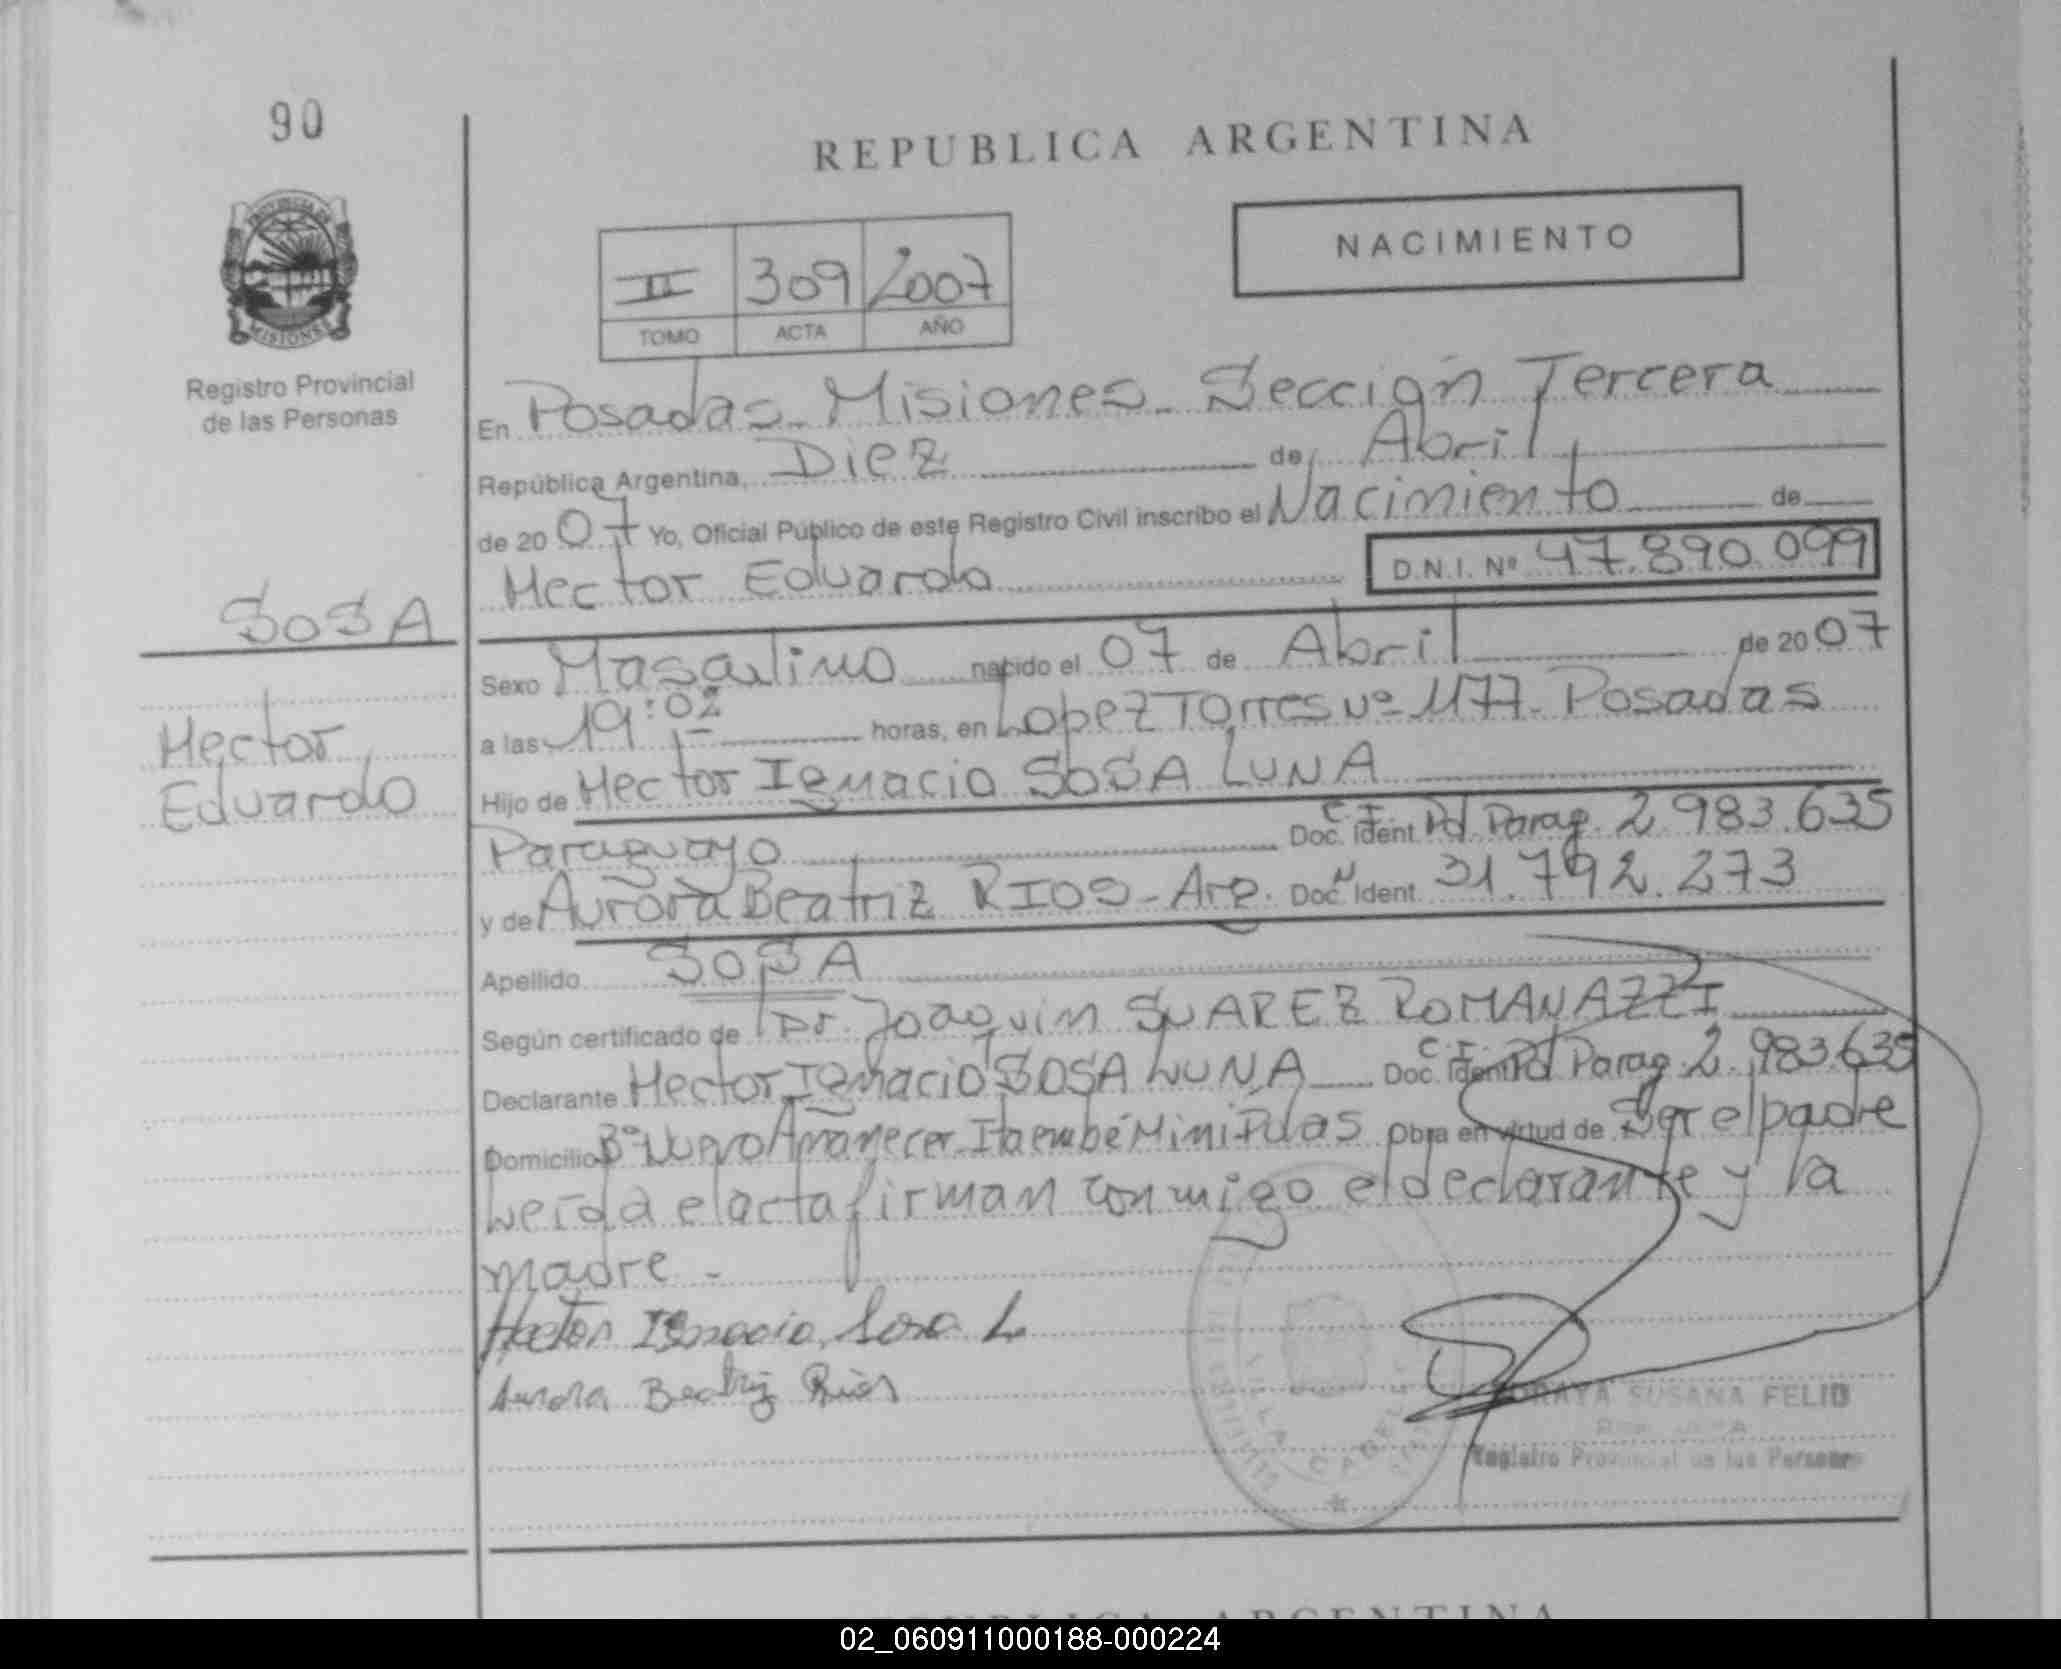 90
REPUBLICA ARGENTINA
PROVINCIA DE
MISIONES
NACIMIENTO
II 309 2007
TOMO ACTA AÑO
Registro Provincial
de las Personas
En Posadas - Misiones - Sección Tercera
República Argentina, Diez de Abril
de 2007 Yo, Oficial Público de este Registro Civil inscribo el Nacimiento de
Hector Eduardo D.N.I. Nº 47.890.099
SOSA
Hector
Eduardo
Sexo Masculino nacido el 07 de Abril de 2007
a las 19:02 horas, en Lopez Torres Nº 1177 - Posadas
Hijo de Hector Ignacio SOSA LUNA
Paraguayo Doc. Ident. C.I. Pol Parag. 2.983.635
y de Aurora Beatriz RIOS - Arg. Doc. N Ident. 31.792.273
Apellido SOSA
Según certificado de Dr. Joaquin SUAREZ ROMANAZZI
Declarante Hector Ignacio SOSA LUNA Doc. Ident. C.I. Pol Parag. 2.983.635
Domicilio Bº Nuevo Amanecer - Itaembé Mini - Pdas Obra en virtud de Ser el padre
Leída el acta firman conmigo el declarante y la
madre -
Hector Ignacio Sosa L.
Aurora Beatriz Rios
SUSANA FELID
Registro Provincial de las Personas
REPUBLICA ARGENTINA
02_060911000188-000224